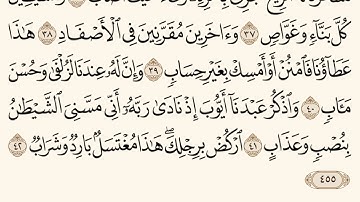 كُلَّ بَنَّآءٍ وَغَوَّاصٍ ٣٧ وَءَاخَرِينَ مُقَرَّنِينَ فِى ٱلْأَصْفَادِ ٣٨ هَٰذَا
عَطَآؤُنَا فَٱمْنُنْ أَوْ أَمْسِكْ بِغَيْرِ حِسَابٍ ٣٩ وَإِنَّ لَهُۥ عِندَنَا لَزُلْفَىٰ وَحُسْنَ
مَـَٔابٍ ٤٠ وَٱذْكُرْ عَبْدَنَآ أَيُّوبَ إِذْ نَادَىٰ رَبَّهُۥٓ أَنِّى مَسَّنِىَ ٱلشَّيْطَٰنُ
بِنُصْبٍ وَعَذَابٍ ٤١ ٱرْكُضْ بِرِجْلِكَ ۖ هَٰذَا مُغْتَسَلٌۢ بَارِدٌ وَشَرَابٌ ٤٢
٤٥٥